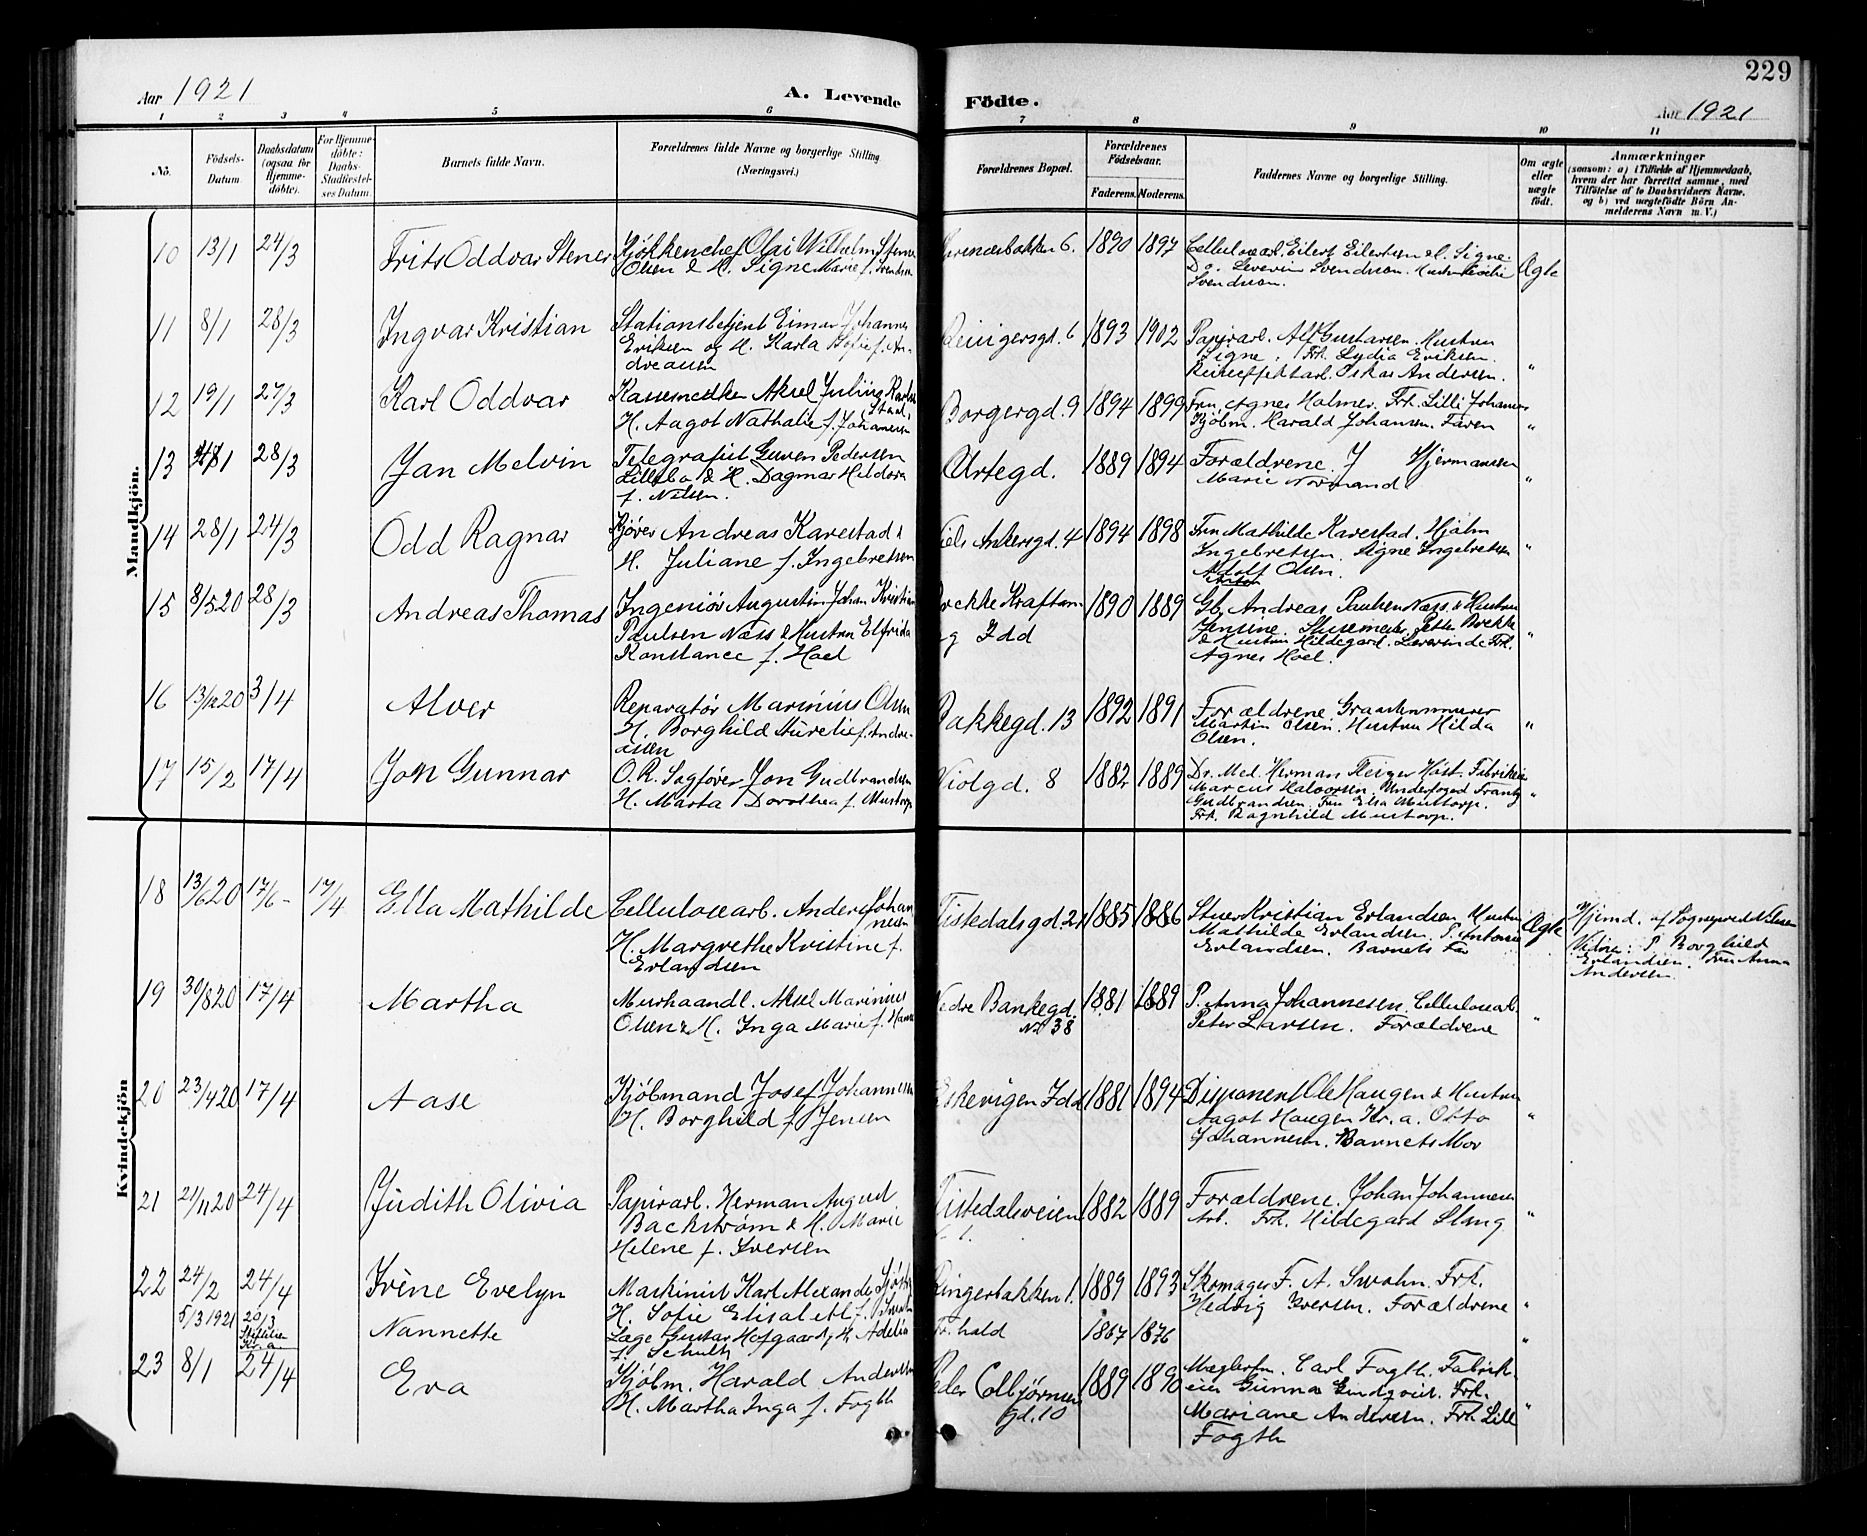 229
Aar 1921
A. Levende
Födte.
Aar 1921
1 2 3 4 5 6 7 8 9 10 11
No.
Födsels-Datum.
Daabsdatum (ogsaa for Hjemme-döbte).
For Hjemme-döbte: Daabs-Stadfæstel-ses Datum.
Barnets fulde Navn.
Forældrenes fulde Navne og borgerlige Stilling (Næringsvei.)
Forældrenes Bopæl.
Forældrenes Födselsaar.
Faderens. Moderens.
Faddernes Navne og borgerlige Stilling.
Om ægte eller uægte födt.
Anmærkninger
(saasom: a) i Tilfælde af Hjemmedaab,
hvem der har forrettet samme, med
Tilföielse af to Daabsvidners Navne.
og b) ved uægtefödte Börn An-
melderens Navn m. V.)
Mandkjön.
10 13/1 24/3 Frits Oddvar Stener Kjøkkenchef Olai Wilhelm Stener 6. 1890 1897 Eilert Eilertsen Signe
Olsen & H. Signe Marie f. Svendsen Severin Svendsen. Ægte
Svendsen.
11 8/1 28/3 Ingvar Kristian Stationsbetjent Einar Johannes 6 1893 1902 Papirarb. Alf Gustavsen. Hustru
Eriksen og H. Karla Sofie f. An- Signe. Frk. Lydia Eriksen.
dreassen Oskar Andersen. "
12 19/1 27/3 Karl Oddvar Aksel Julius Karlsen Borgergd. 9 1894 1899 Fru Agnes Holmer. Frk. Lilli Johansen
H. Aagot Nathalie f. Johansen Kjøbm. Harald Johansen. Faren "
13 28/3 Jan Melvin Telegrafist Pedersen Urtegd. 1889 1894 Forældrene. J Hjermansen
Lillebo & H. Dagmar Hildora Marie Normand "
f. Nilsen.
14 28/1 24/3 Odd Ragnar Kjører Andreas Karestad & Niels Ankersgd. 4 1894 1898 Fru Mathilde Karestad. Hjalm
H. Juliane f. Ingebretsen Ingebretsen. Signe Ingebretsen "
Adolf Olsen.
15 8/5 20 28/3 Andreas Thomas Ingeniør Augustin Johan Kristian Brekke Kraftan 1890 1889 Gb. Andreas Paulsen Næss & Hustru
Paulsen Næss & Hustru Elfrida Idd Jensine. Slusemester Petter Brekke
Konstance f. Hoel & Hustru Hildegard. Frk. "
Agnes Hoel.
16 13/12 20 3/4 Alver Reparatør Marinius Olsen Bakkegd. 13 1892 1891 Forældrene. Graastensmurer
H. Borghild Aurelie f. Andre- Martin Olsen. Hustru Hilda "
asen Olsen.
17 15/2 17/4 Jon Gunnar O. R. Sagfører Jon Gudbrandsen Violgd. 8 1882 1889 Dr. Med. Herman Høst. Fabrikeier
H. Marta Dorothea f. Mustorp Marcus Halvorsen. Underfoged Frantz "
Gudbrandsen. Fru Elsa Mustorp.
Frk. Ragnhild Mustorp.
Kvindekjön
18 13/6 20 17/6 17/4 Ella Mathilde Cellulosearb. Anders Johan- Tistedalsgd. 21 1885 1886 Stuer Kristian Erlandsen Hustru Ægte Hjemd. af Sognepræst Nilssen
nesen Mathilde Erlandsen. P. Antonie Vidne: P. Borghild
H. Margrethe Kristine f. Erlandsen. Barnets Far Erlandsen. Fru Anna
Erlandsen Andersen
19 30/8 20 17/4 Martha Murhaandl. Aksel Marinius Nedre Bankegd. 1881 1889 P. Anna Johannesen. Cellulosearb.
Olsen & H. Inga Marie f. No 38 Peter Larsen. Forældrene "
20 23/4 20 17/4 Aase Kjøbmand Josef Johannesen Eskevigen Idd 1881 1894 Disponent Ole Haugen & Hustru
H. Borghild f. Jensen Aagot Haugen Kr.a. Otto "
Johannesen. Barnets Mor
21 21/11 20 24/4 Judith Olivia Papirarb. Herman August Tistedalsveien 1882 1889 Forældrene. Johan Johannesen
Backstrøm & H. Marie Arb. Frk. Hildegard Slang "
Helene f. Iversen
22 24/2 24/4 Irène Evelyn Maskinist Karl Alexander Ringerbakken 1. 1889 1893 Skomager F. A. Swahn. Frk.
H. Sofie Elisabeth f. Swahn Hedvig Iversen. Forældrene "
5/3 1921 20/3 Nannette Læge Gustav Hofgaard, H. Adelia Fr.hald 1867 1876 "
Kr. a. f. Schultz
23 8/1 24/4 Eva Kjøbm. Harald Andersen Peder Colbjørnsens 1889 1890 Carl Fogth. Fabrik-
H. Martha Inga f. Fogth gd. 10 eier Gunnar Lindqvist. Frk.
Mariane Andersen. Frk. Lilli "
Fogth